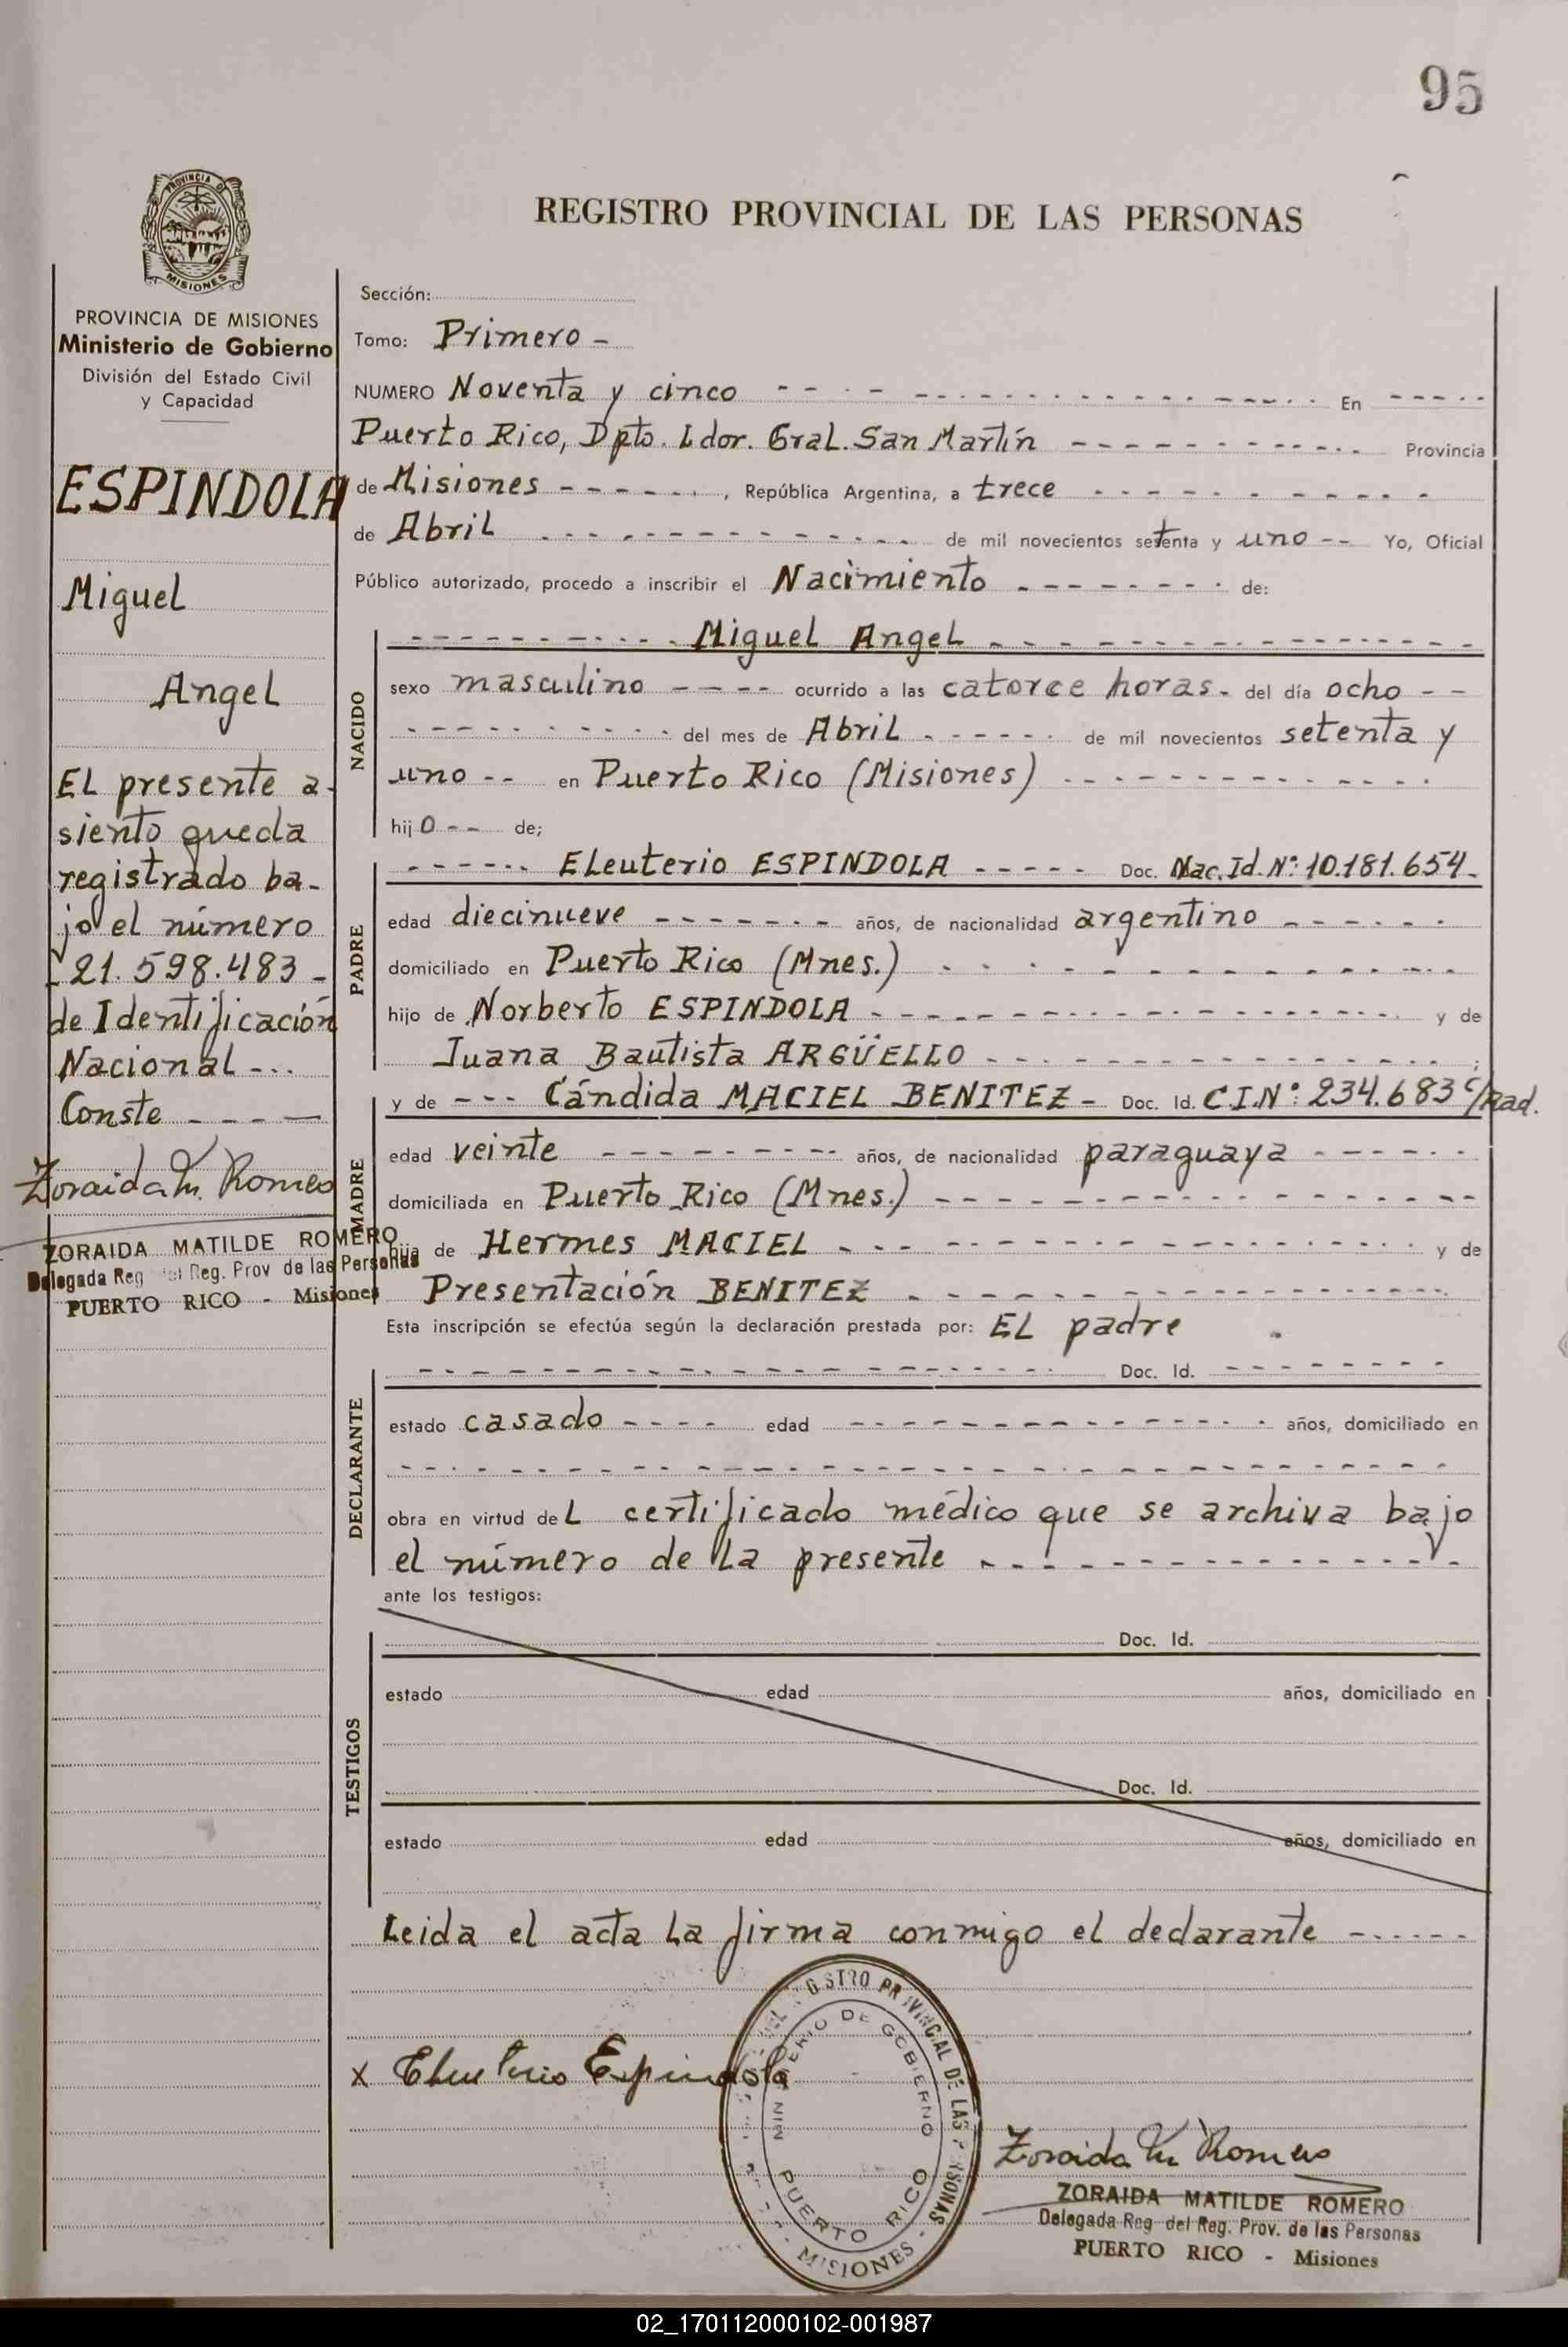 95
PROVINCIA DE
MISIONES
REGISTRO PROVINCIAL DE LAS PERSONAS
PROVINCIA DE MISIONES
Ministerio de Gobierno
División del Estado Civil
y Capacidad
ESPINDOLA
Miguel
Angel
EL presente a-
siento queda
registrado ba-
jo el número
-21.598.483-
de Identificación
Nacional - - -
Conste - - - -
Zoraida M. Romero
ZORAIDA MATILDE ROMERO
Delegada Reg del Reg. Prov de las Personas
PUERTO RICO - Misiones
Sección:
Tomo: Primero -
NUMERO Noventa y cinco - - - - En - - - -
Puerto Rico, Dpto. Ldor. Gral. San Martín - - - - Provincia
de Misiones - - - - , República Argentina, a trece - - - -
de Abril - - - - de mil novecientos setenta y uno - - Yo, Oficial
Público autorizado, procedo a inscribir el Nacimiento - - - - de:
NACIDO
- - - - Miguel Angel - - - -
sexo masculino - - - - ocurrido a las catorce horas - del día ocho - -
- - - - del mes de Abril - - - - de mil novecientos setenta y
uno - - en Puerto Rico (Misiones) - - - -
hijo - - de;
PADRE
- - - - Eleuterio ESPINDOLA - - - - Doc. Nac. Id. Nº: 10.181.654 -
edad diecinueve - - - - años, de nacionalidad argentino - - - -
domiciliado en Puerto Rico (Mnes.) - - - -
hijo de Norberto ESPINDOLA - - - - y de
Juana Bautista ARGÜELLO - - - - ;
MADRE
y de - - - Cándida MACIEL BENITEZ - Doc. Id. C.I.Nº: 234.683 c/Rad.
edad veinte - - - - años, de nacionalidad paraguaya - - - -
domiciliada en Puerto Rico (Mnes.) - - - -
hija de Hermes MACIEL - - - - y de
Presentación BENITEZ - - - -
Esta inscripción se efectúa según la declaración prestada por: EL padre
DECLARANTE
- - - - Doc. Id. - - - -
estado casado - - - - edad - - - - años, domiciliado en
- - - -
obra en virtud deL certificado médico que se archiva bajo
el número de La presente - - - -
ante los testigos:
TESTIGOS
Doc. Id.
estado edad años, domiciliado en
Doc. Id.
estado edad años, domiciliado en
Leida el acta La firma conmigo el declarante - - - -
x Eleuterio Espindola
MINISTERIO DE GOBIERNO
PUERTO RICO
REGISTRO PROVINCIAL DE LAS PERSONAS
- MISIONES -
Zoraida M. Romero
ZORAIDA MATILDE ROMERO
Delegada Reg del Reg. Prov. de las Personas
PUERTO RICO - Misiones
02_170112000102-001987